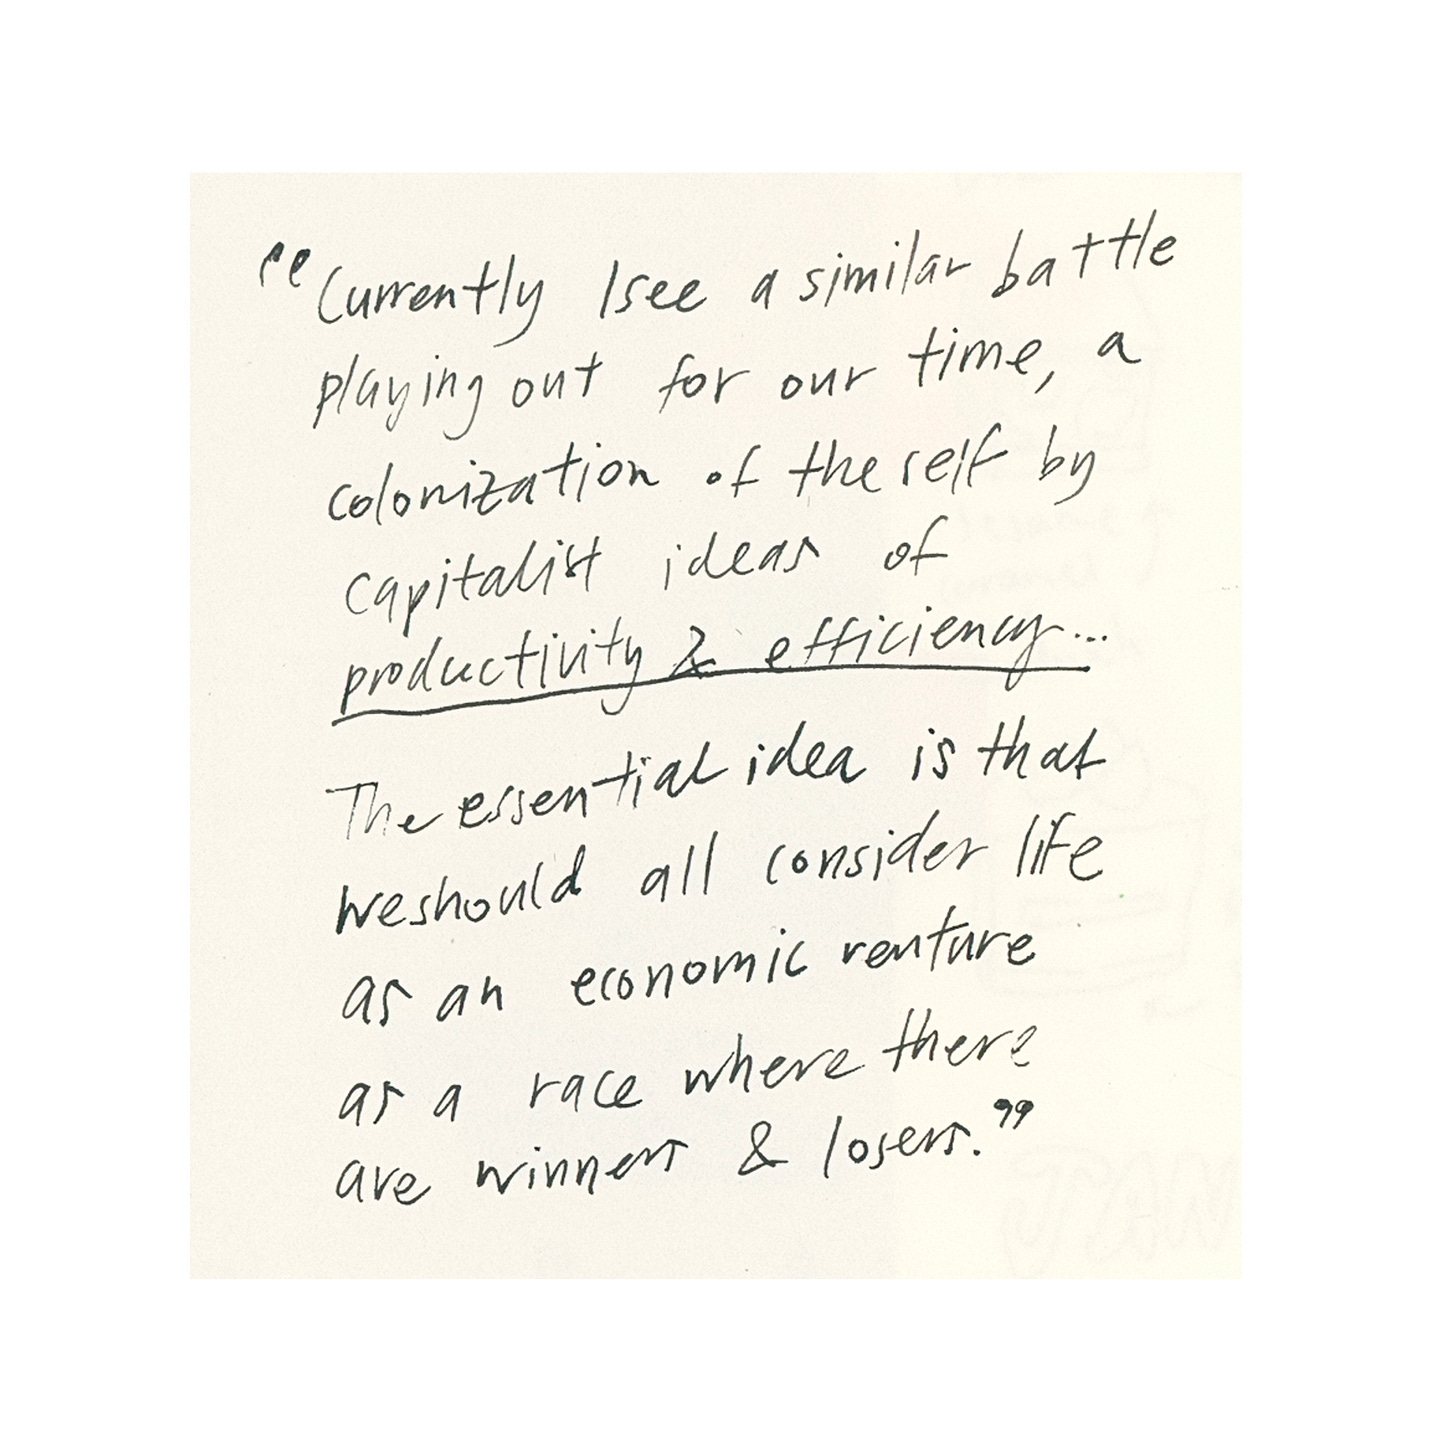 “Currently I see a similar battle
playing out for our time, a
colonization of the self by
capitalist ideas of
productivity & efficiency...
The essential idea is that
we should all consider life
as an economic venture
as a race where there
are winners & losers.”